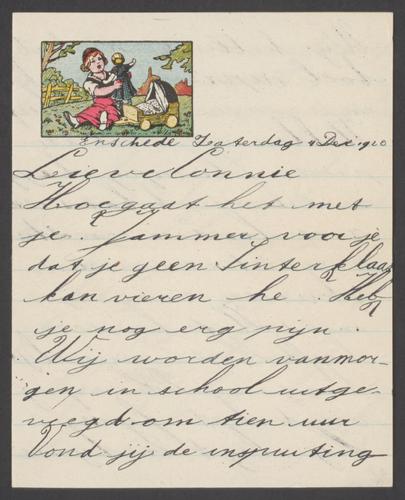 Enschede Zaterdag 4 Dec. 1920
Lieve Connie
Hoe gaat het met
je. Jammer voor je
dat je geen Sinterklaas
kan vieren he. Heb
je nog erg pijn.
Wij worden vanmor-
gen in school uitge-
veegd om tien uur
Vond jij de inspuiting